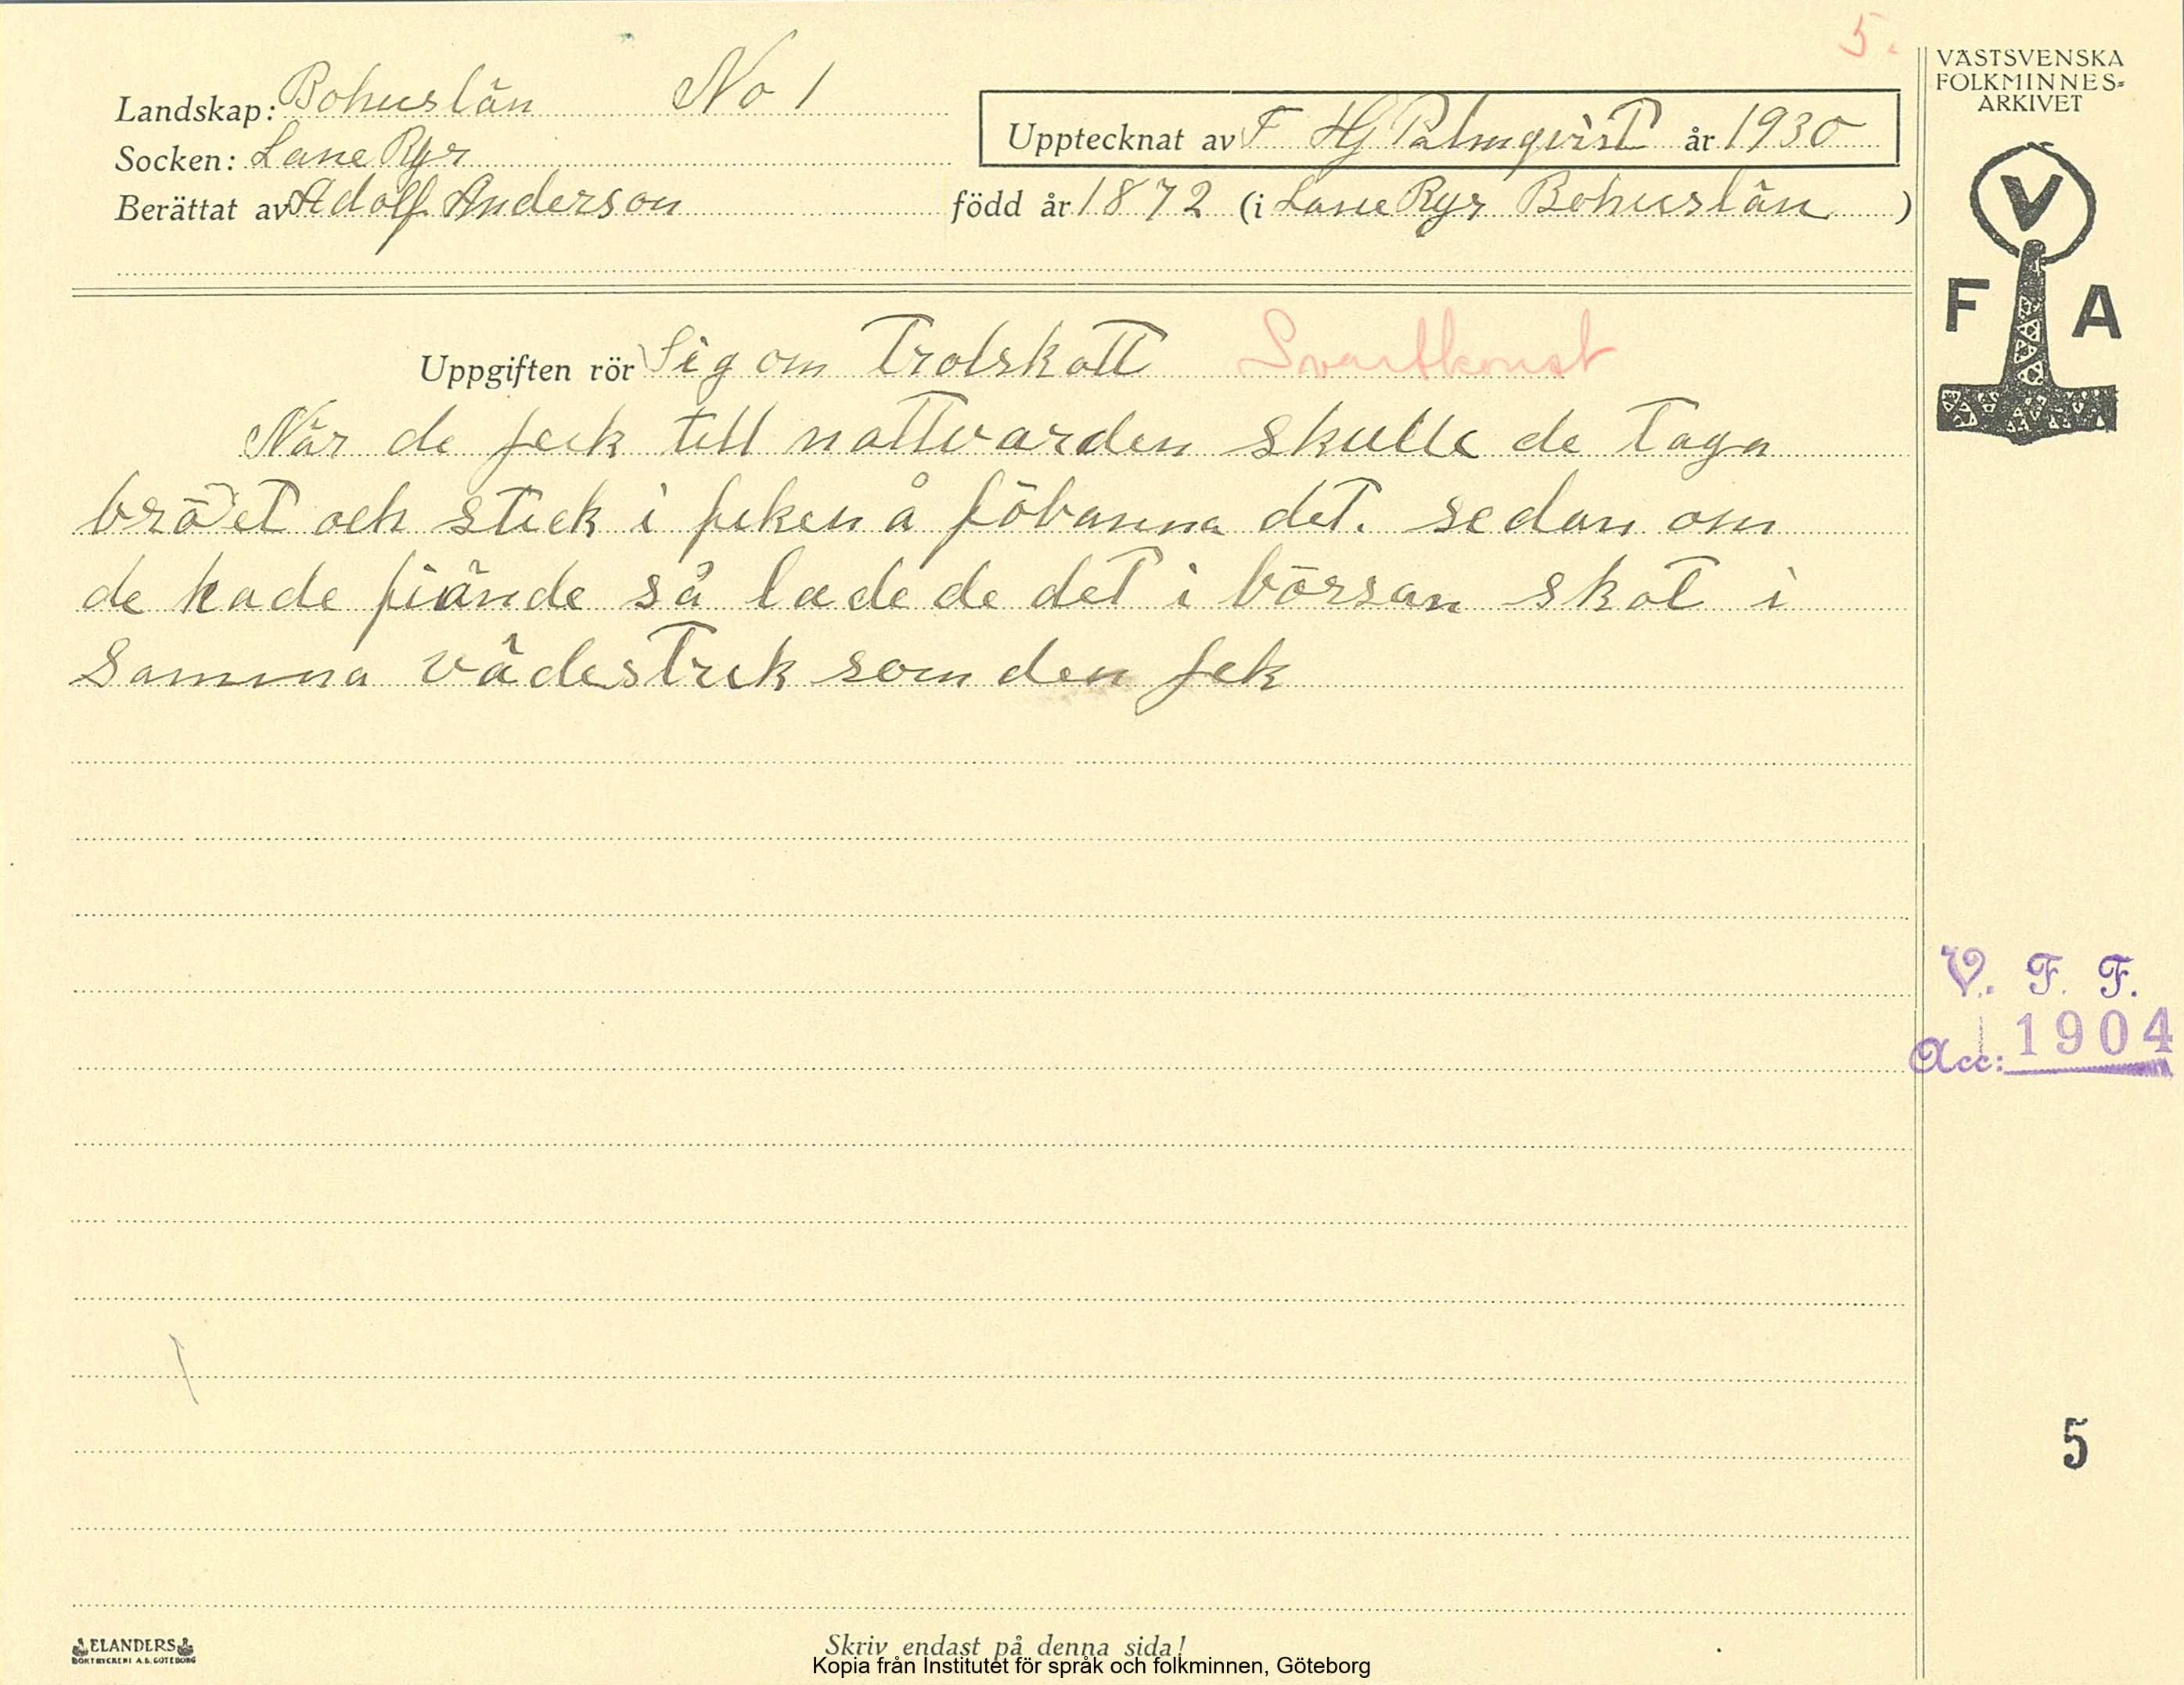 5.
Landskap: Bohuslän No 1
Upptecknat av F Hj Palmqvist år 1930
Socken: Lane Ryr
Berättat av Adolf Anderson född år 1872 (i Lane Ryr Bohuslän )
VÄSTSVENSKA
FOLKMINNES-
ARKIVET
V
F A
Uppgiften rör Sig om Trolskott Svartkonst
När de feck till nattvarden skulle de taga
brödet och steck i feken å föbanna det. sedan om
de hade fiände så lade de det i börsan skot i
Samma vädestrek som den fek
V. F. F.
Acc: 1904
5
ELANDERS
BOKTRYCKERI A.B. GÖTEBORG
Skriv endast på denna sida!
Kopia från Institutet för språk och folkminnen, Göteborg